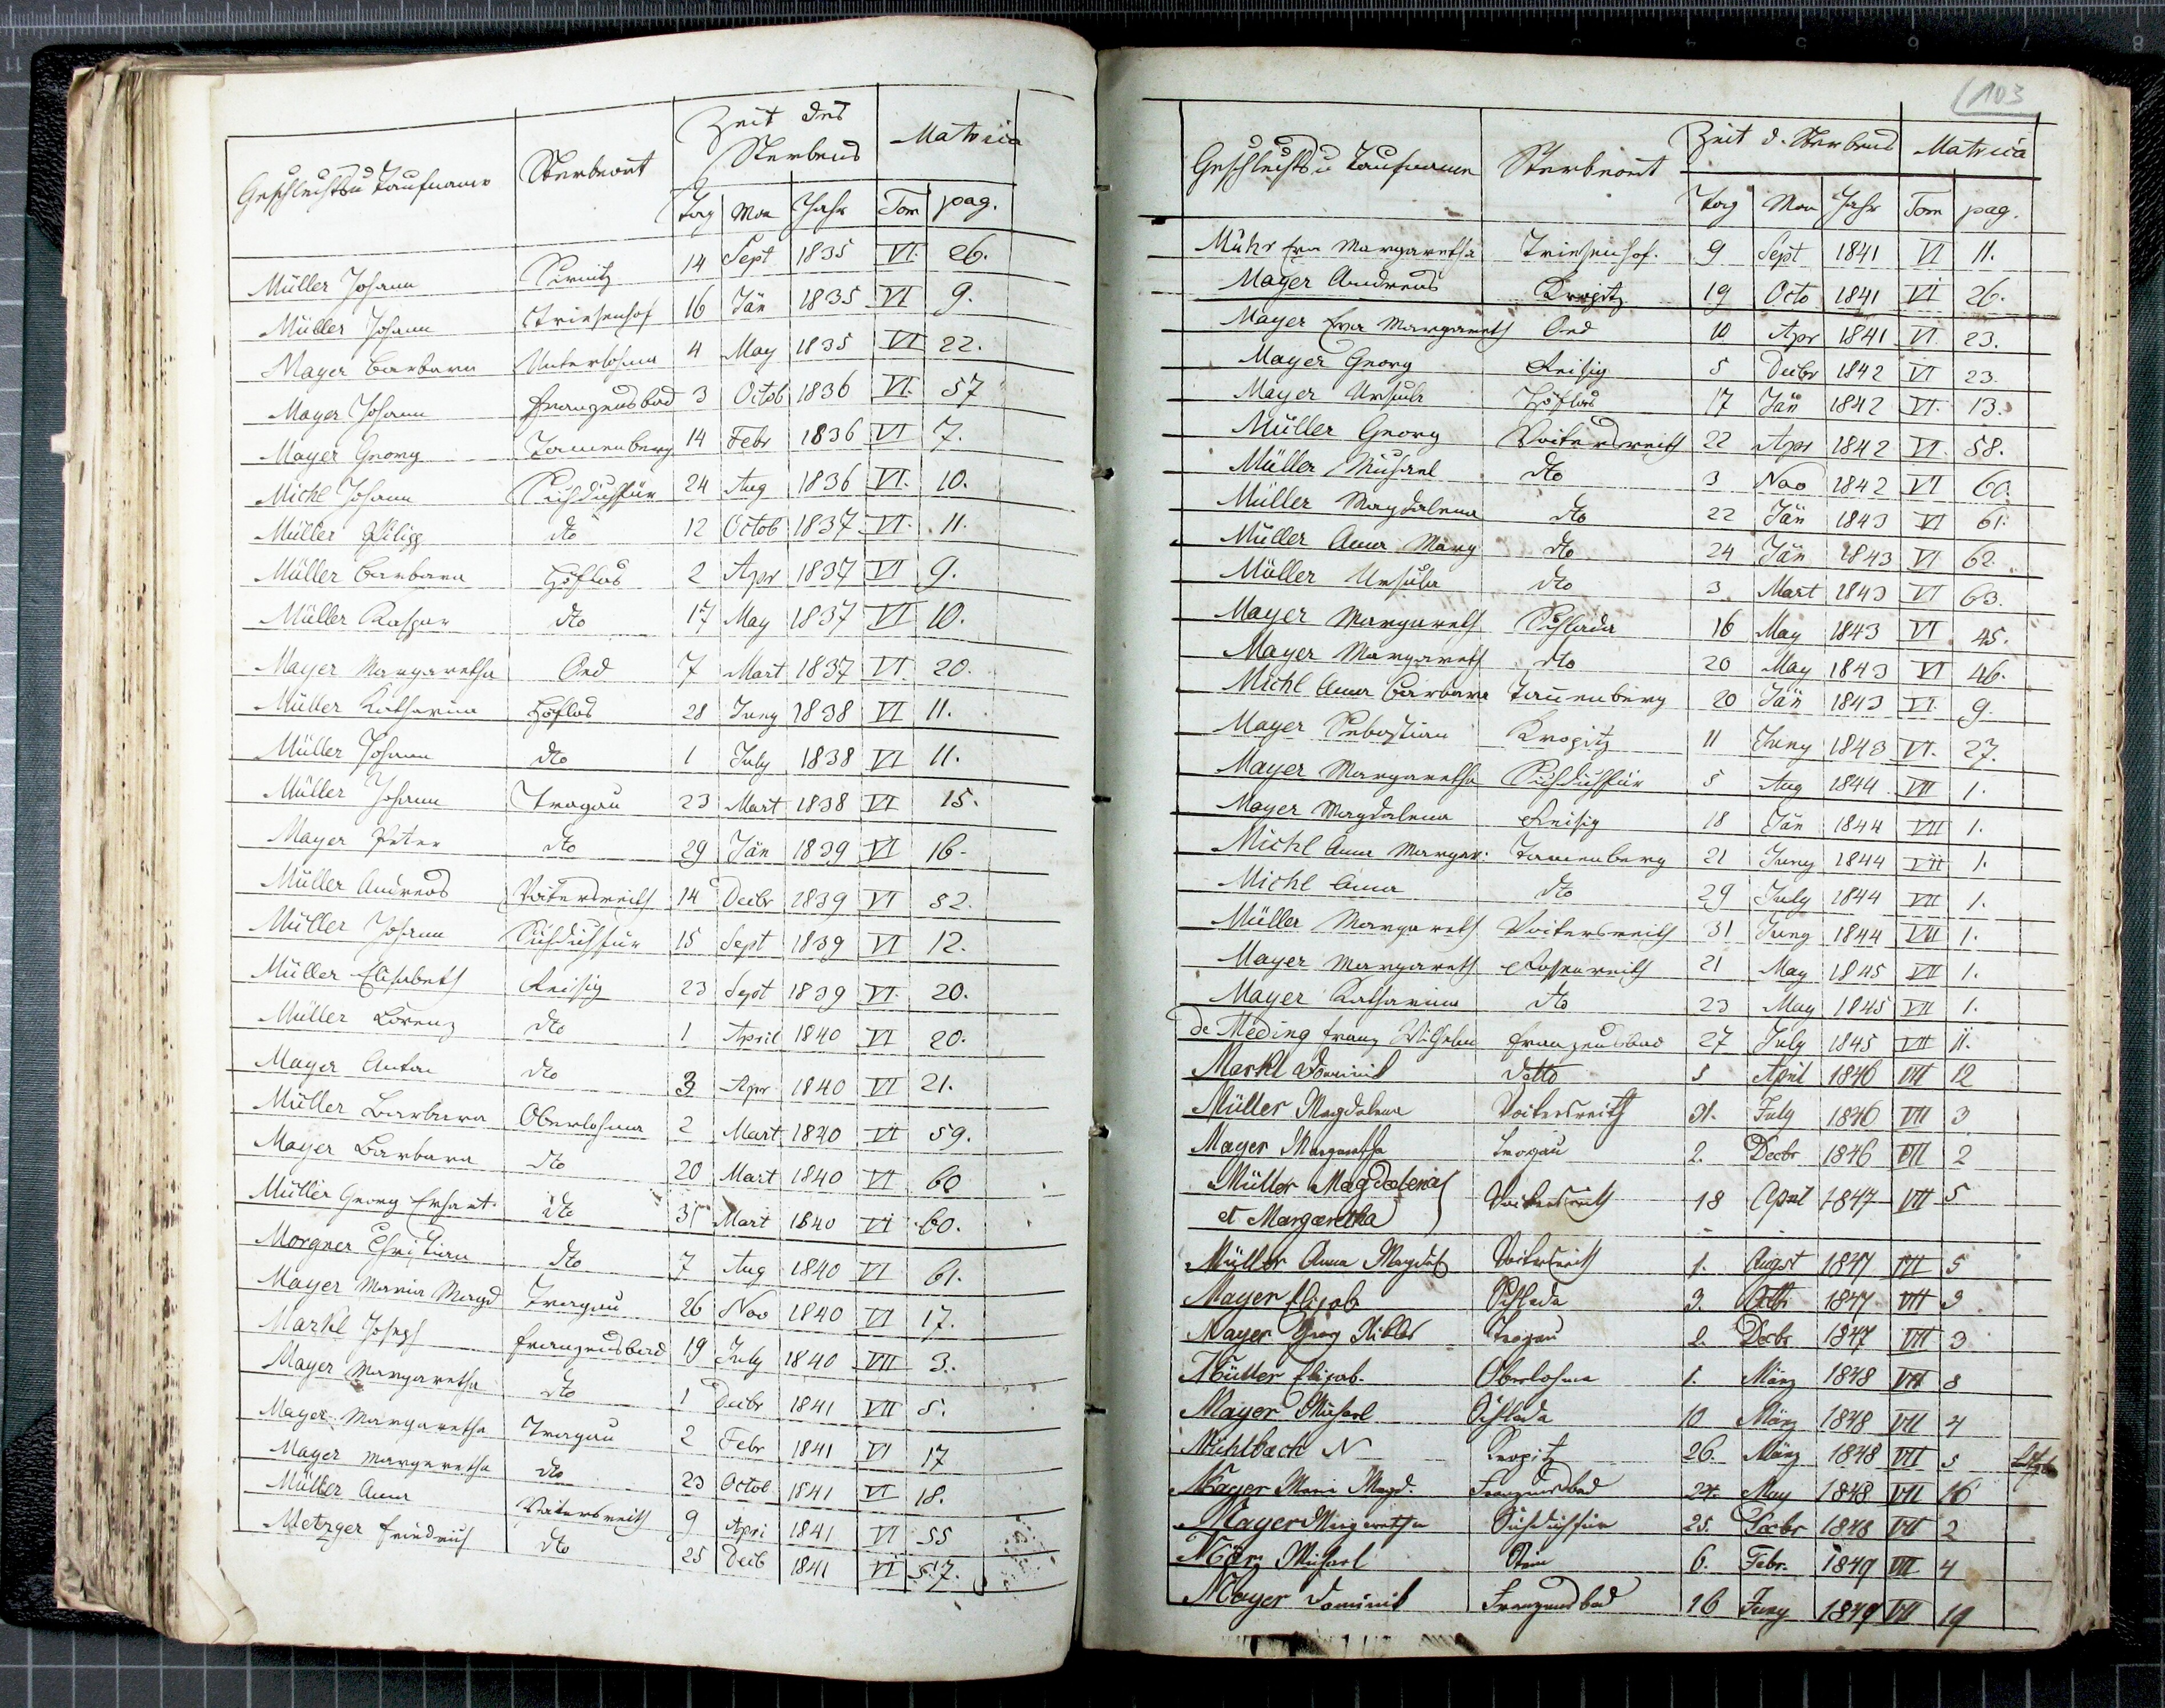 Geschlechts u Taufname Sterbeort Zeit des Sterbens Matrica
Tag Mon Jahr Tom pag.
Müller Johann Sirmitz 14 Sept 1835 VI. 26.
Müller Johann Triesenhof 16 Jän 1835 VI 9.
Mayer Barbara Unterlohma 4 May 1835 VI 22.
Mayer Johann Franzensbad 3 Octob 1836 VI. 57
Mayer Georg Tannenberg 14 Febr 1836 VI 7.
Michl Johann Sichdichfür 24 Aug 1836 VI. 10.
Müller Philipp dto 12 Octob 1837 VI. 11.
Müller Barbara Höflas 2 Apr 1837 VI 9.
Müller Kaspar dto 17 May 1837 VI 10.
Mayer Margaretha Oed 7 Mart 1837 VI. 20.
Müller Katharina Höflas 28 Juny 1838 VI 11.
Müller Johann dto 1 July 1838 VI 11.
Müller Johann Trogau 23 Mart 1838 VI 15.
Mayer Peter dto 29 Jän 1839 VI 16.
Müller Andreas Voitersreith 14 Decbr 1839 VI 52.
Müller Johann Sichdichfür 15 Sept 1839 VI 12.
Müller Elisabeth Reisig 23 Sept 1839 VI. 20.
Müller Lorenz dto 1 April 1840 VI 20.
Mayer Anton dto 3 Apr 1840 VI 21.
Müller Barbara Oberlohma 2 Mart 1840 VI 59.
Mayer Barbara dto 20 Mart 1840 VI 60
Müller Georg Erhart dto 31 Mart 1840 VI 60.
Morgner Christian dto 7 Aug 1840 VI 61.
Mayer Maria Magd Trogau 26 Nov 1840 VI 17.
Markl Joseph Franzensbad 19 July 1840 VII 3.
Mayer Margaretha dto 1 Decbr 1841 VII 5.
Mayer Margaretha Trogau 2 Febr 1841 VI 17
Mayer Margaretha dto 23 Octob 1841 VI 18.
Müller Anna Voitersreith 9 Apri 1841 VI 55
Metzger Friedrich dto 25 Decb 1841 VI 57.
103
Geschlechts u Taufname Sterbeort Zeit d. Sterbens Matrica
Tag Mon Jahr Tom pag.
Mühr Eva Margaretha Triesenhof. 9 Sept 1841 VI 11.
Mayer Andreas Kropitz 19 Octo 1841 VI 26.
Mayer Eva Margareth Oed 10 Apr 1841 VI. 23.
Mayer Georg Reisig 5 Decbr 1842 VI 23.
Mayer Ursula Höflas 17 Jän 1842 VI. 13.
Müller Georg Voitersreith 22 Apr 1842 VI. 58.
Müller Michael dto 3 Nov 1842 VI 60.
Müller Magdalena dto 22 Jän 1843 VI 61.
Müller Anna Marg dto 24 Jän 1843 VI 62.
Müller Ursula dto 3 Mart 1843 VI 63.
Mayer Margareth Schlada 16 May 1843 VI 45.
Mayer Margareth dto 20 May 1843 VI 46.
Michl Anna Barbara Tannenberg 20 Jän 1843 VI. 9.
Mayer Sebastian Kropitz 11 Juny 1843 VI. 27.
Mayer Margaretha Sichdichfür 5 Aug 1844 VII 1.
Mayer Magdalena Reisig 18 Jän 1844 VII 1.
Michl Anna Margar: Tannenberg 21 Juny 1844 VII 1.
Michl Anna dto 29 July 1844 VII 1.
Müller Margareth Voitersreith 31 Juny 1844 VII 1.
Mayer Margareth Rossenreith 21 May 1845 VII 1.
Mayer Katharina dto 23 May 1845 VII 1.
de Meding Franz Wilhelm Franzensbad 27 July 1845 VII 11.
Markl Dominik Detto 5 April 1846 VII 12
Müller Magdalena Voitersreith 31. July 1846 VII 3
Mayer Margaretha Trogau 2. Decbr 1846 VII 2
Müller Magdalena
et Margaretha Voitersreith 18 April 1847 VII 5
Müller Anna Magdal Voitersreith 1. Augst 1847 VII 5
Mayer Elisab Schlada 3. Octbr 1847 VII 3
Mayer Georg Niklas Trogau 2. Decbr 1847 VII 3
Müller Elisab. Oberlohma 1. März 1848 VII 8
Mayer Michael Schlada 10 März 1848 VII 4
Mühlbach N Kropitz 26. März 1848 VII 5
Mayer Maria Magd. Franzensbad 24. May 1848 VII 16
Mayer Margaretha Sichdichfür 25. Decbr 1848 VII 2
Michael 6. Febr. 1849 VII 4
Mayer Dominik Franzensbad 16 Juny 1849 VII 19